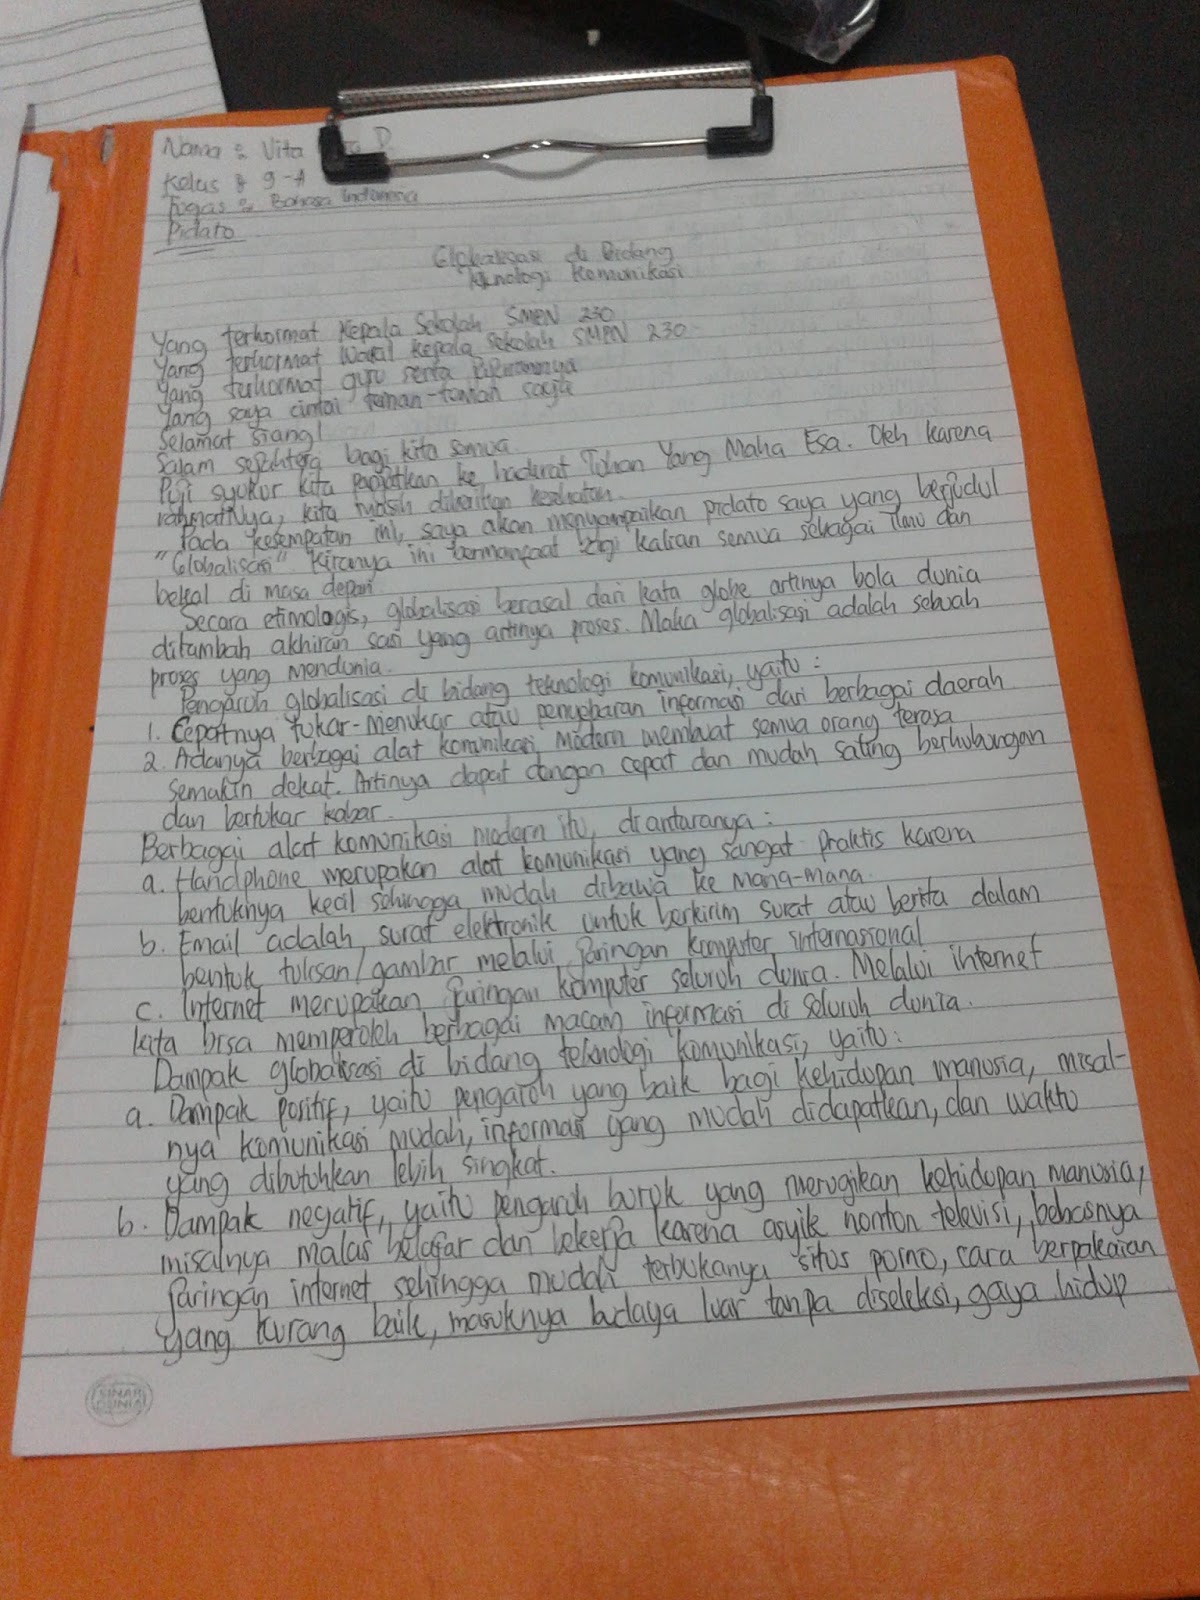 Nama : Vita D.
Kelas : 9-A
Tugas : Bahasa Indonesia
Pidato
Globalisasi di Bidang
Teknologi Komunikasi
Yang terhormat Kepala Sekolah SMPN 230
Yang terhormat Wakil Kepala Sekolah SMPN 230
Yang terhormat guru serta
Yang saya cintai teman-teman saya
Selamat siang!
Salam sejahtera bagi kita semua
Puji syukur kita panjatkan ke hadirat Tuhan Yang Maha Esa. Oleh karena
rahmatNya, kita masih diberikan kesehatan.
Pada kesempatan ini, saya akan menyampaikan pidato saya yang berjudul
"Globalisasi". Kiranya ini bermanfaat bagi kalian semua sebagai ilmu dan
bekal di masa depan.
Secara etimologis, globalisasi berasal dari kata globe artinya bola dunia
ditambah akhiran sasi yang artinya proses. Maka globalisasi adalah sebuah
proses yang mendunia.
Pengaruh globalisasi di bidang teknologi komunikasi, yaitu :
1. Cepatnya tukar-menukar atau penyebaran informasi dari berbagai daerah
2. Adanya berbagai alat komunikasi modern membuat semua orang terasa
semakin dekat. Artinya dapat dengan cepat dan mudah saling berhubungan
dan bertukar kabar.
Berbagai alat komunikasi modern itu, diantaranya :
a. Handphone merupakan alat komunikasi yang sangat praktis karena
bentuknya kecil sehingga mudah dibawa ke mana-mana.
b. Email adalah surat elektronik untuk berkirim surat atau berita dalam
bentuk tulisan/gambar melalui jaringan komputer internasional
c. Internet merupakan jaringan komputer seluruh dunia. Melalui internet
kita bisa memperoleh berbagai macam informasi di seluruh dunia.
Dampak globalisasi di bidang teknologi komunikasi, yaitu :
a. Dampak positif, yaitu pengaruh yang baik bagi kehidupan manusia, misal-
nya komunikasi mudah, informasi yang mudah didapatkan, dan waktu
yang dibutuhkan lebih singkat.
b. Dampak negatif, yaitu pengaruh buruk yang merugikan kehidupan manusia,
misalnya malas belajar dan bekerja karena asyik nonton televisi, bebasnya
jaringan internet sehingga mudah terbukanya situs porno, cara berpakaian
yang kurang baik, masuknya budaya luar tanpa diseleksi, gaya hidup
SINAR
DUNIA